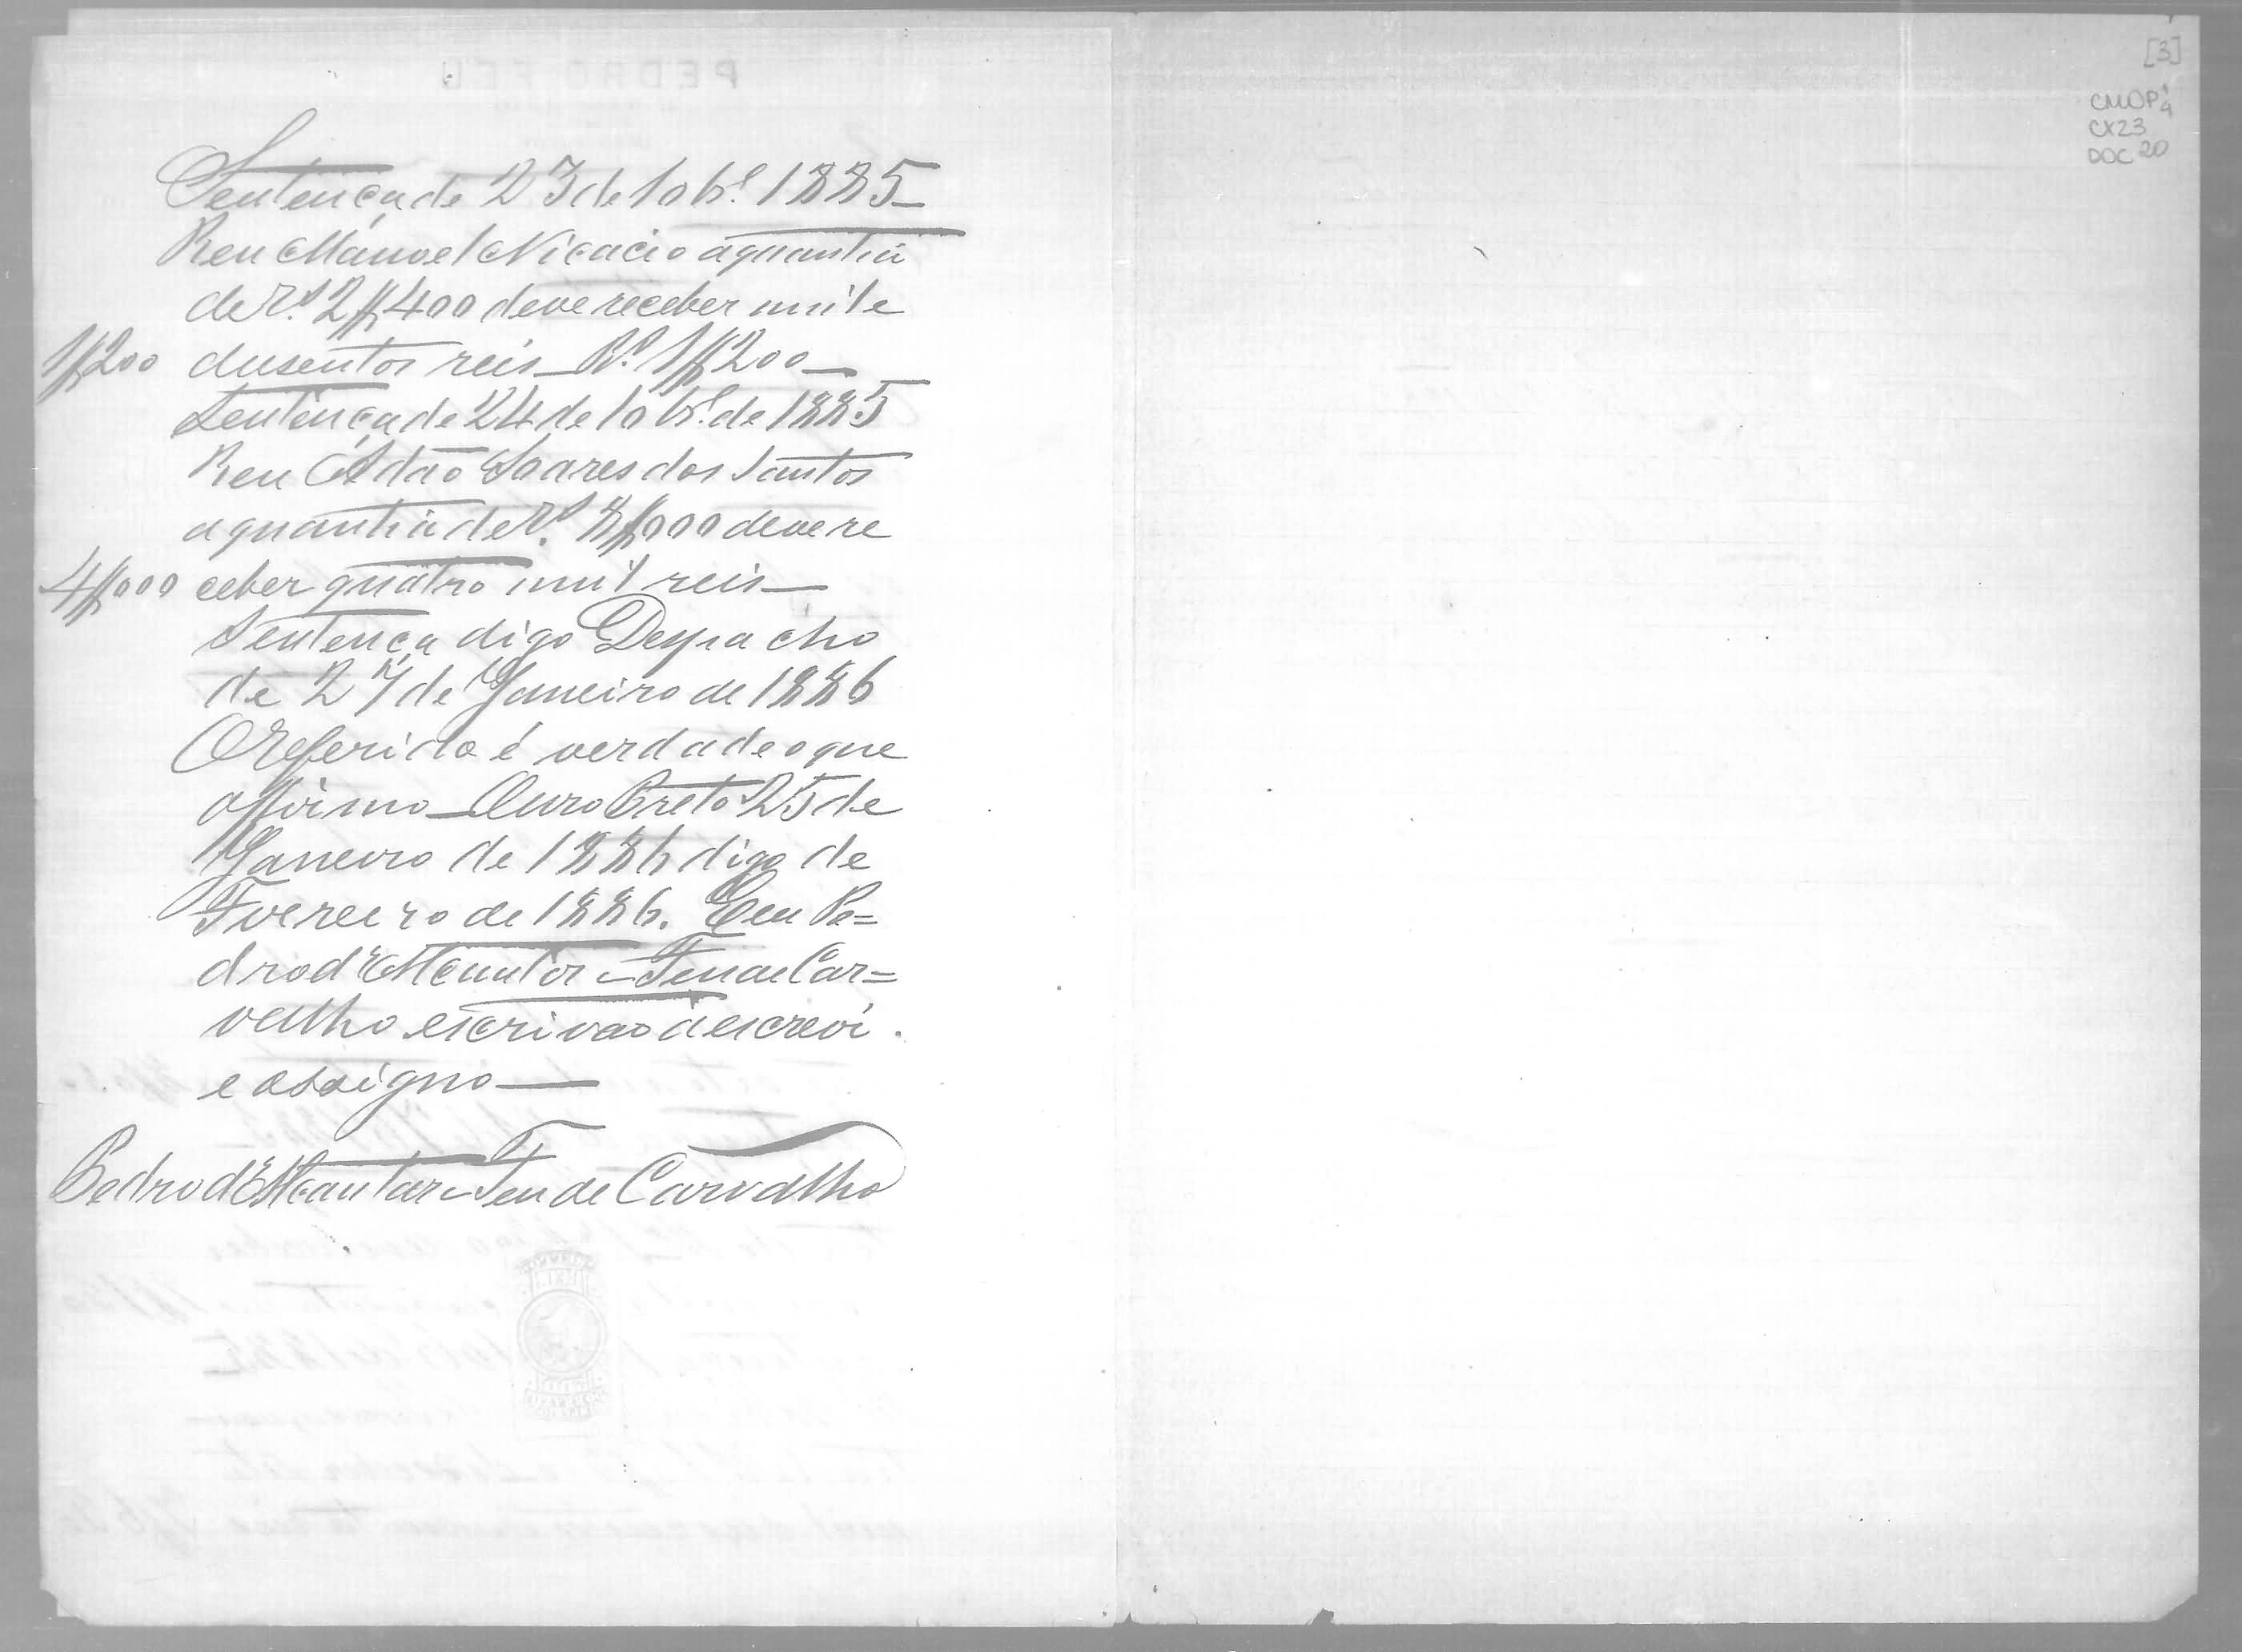 Sentença de 23 de 10br.º 1885
Reu Manoel Nicacio a quantia
de Rs. 2$400 deve receber mil e
1$200 dusentos reis Rs. 1$200
Sentença de 24 de 10br.º de 1885
Reu Adão Soares dos Santos
a quantia de Rs. 8$000 deve re
4$000 ceber quatro mil reis
Sentença digo Despacho
de 27 de Janeiro de 1886
O referido é verdade o que
affirmo Ouro Preto 25 de
Janeiro de 1886 digo de
Fvereiro de 1886. Eu Pe=
dro d'Alcantar Feu de Car=
valho escrivão o escrevi.
e assigno
Pedro d'Alcantara Feu de Carvalho
[3]
CMOP
CX23
DOC 20